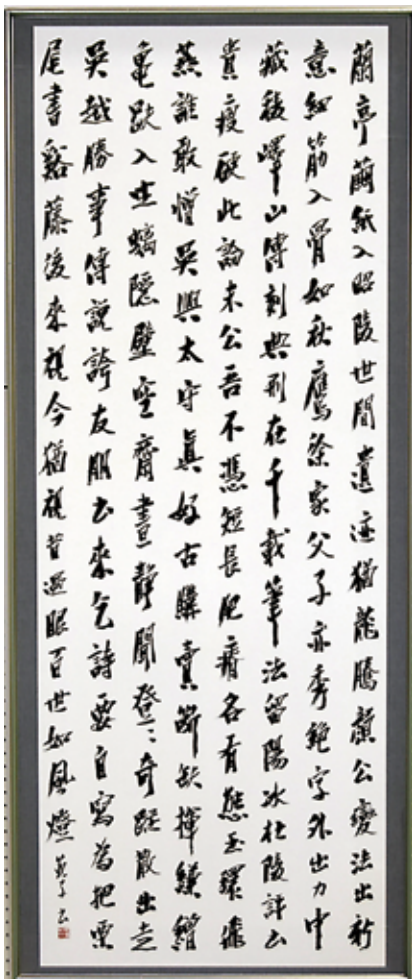 蘭亭繭紙入昭陵世間遺迹猶龍騰顏公變法出新
意細筋入骨如秋鷹徐家父子亦秀絶字外出力中
藏稜嶧山傳刻典刑在千載筆法留陽冰杜陵評書
貴瘦硬此論未公吾不憑短長肥瘠各有態玉環飛
燕誰敢憎吳興太守真好古購買斷缺揮縑繒
龜趺入坐螭隱壁空齋晝靜聞登〻奇蹤散出走
吳越勝事傳説誇友朋書來乞詩要自寫為把栗
尾書谿藤後來視今猶視昔過眼百世如風燈